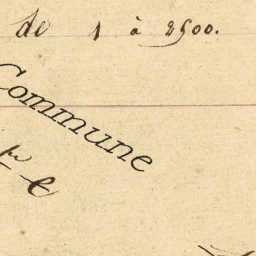 de 1 à 2500.
Commune